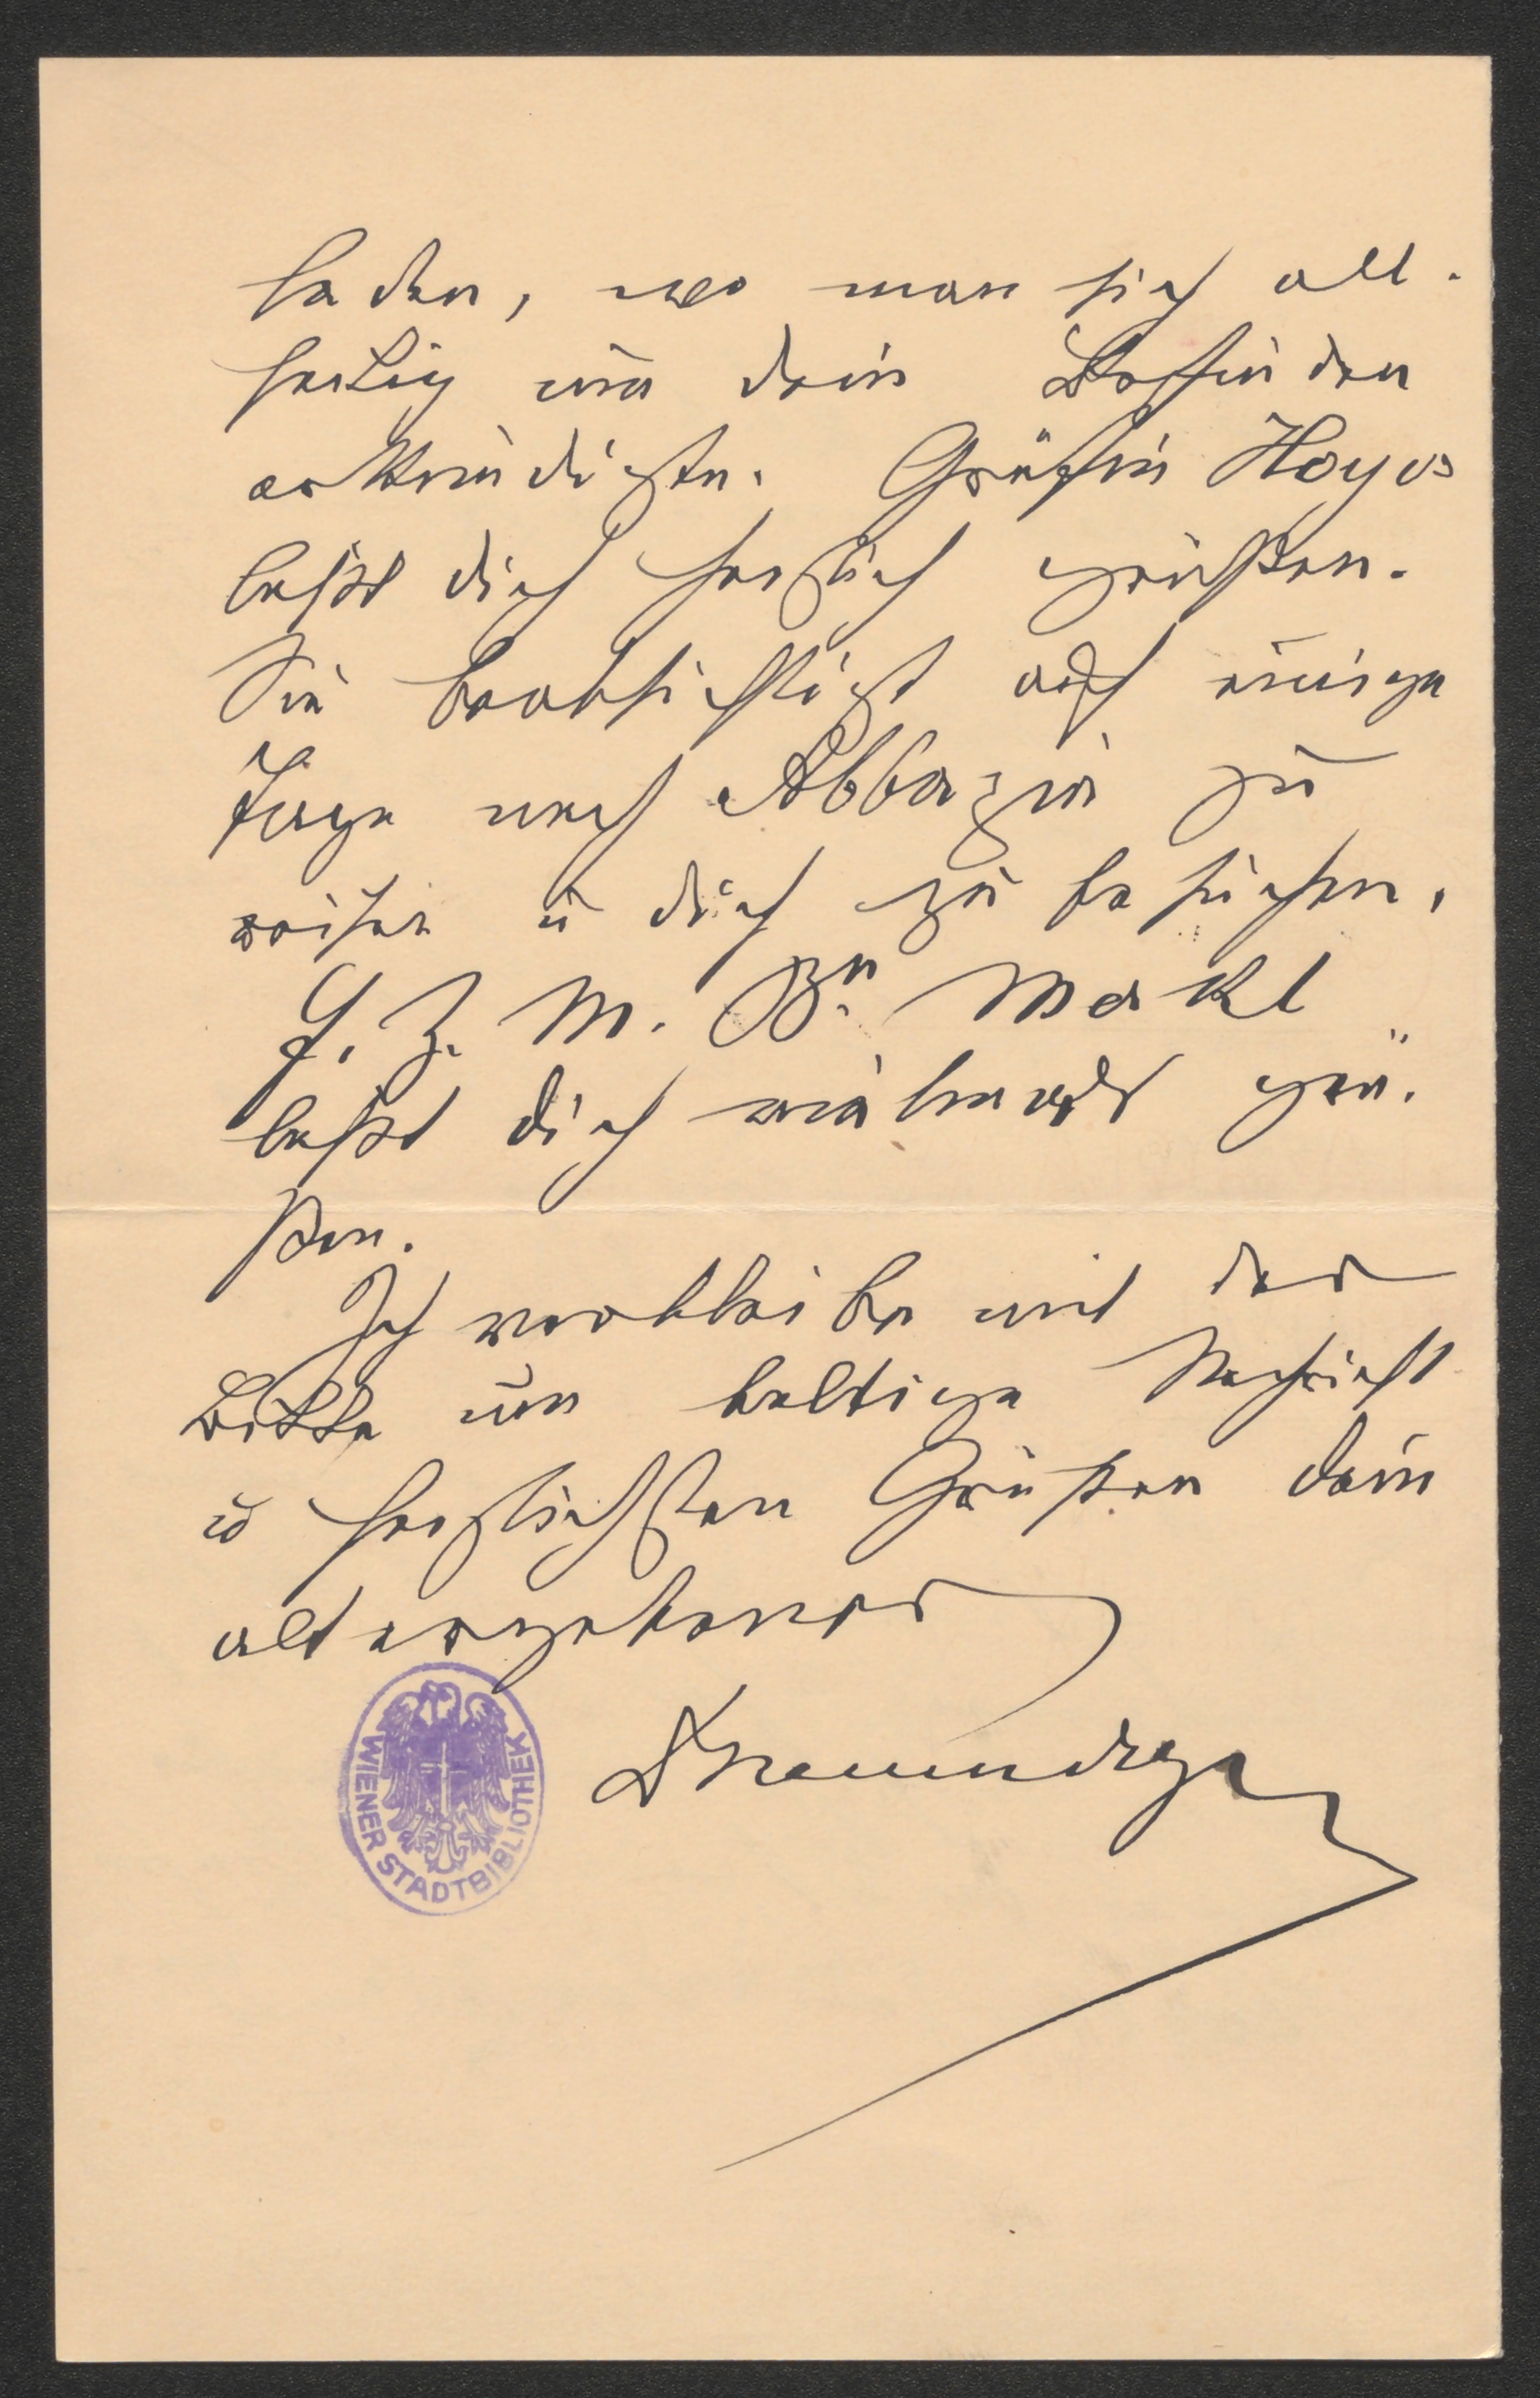 laden, wo man sich all-
seitig um dein Befinden
erkundigte. Gräfin Hoyos
laßt dich herzlich grüßen.
Sie beabsichtigt auf einige
Tage nach Abbazia zu
reisen u dich zu besuchen.
F. Z. M. Bn. Merkl
laßt dich vielmals grü-
ßen.
Ich verbleibe mit der
Bitte um baldige Nachricht
u herzlichsten Grüßen dein
alt ergebener
WIENER STADTBIBLIOTHEK